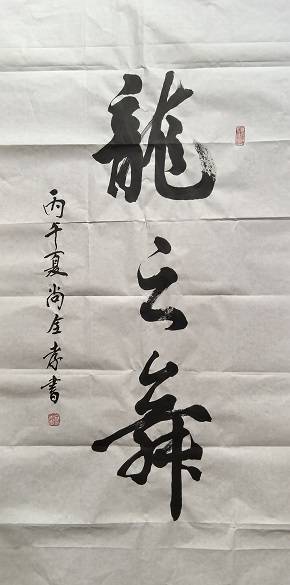 龍之舞
丙午夏尚全孝書